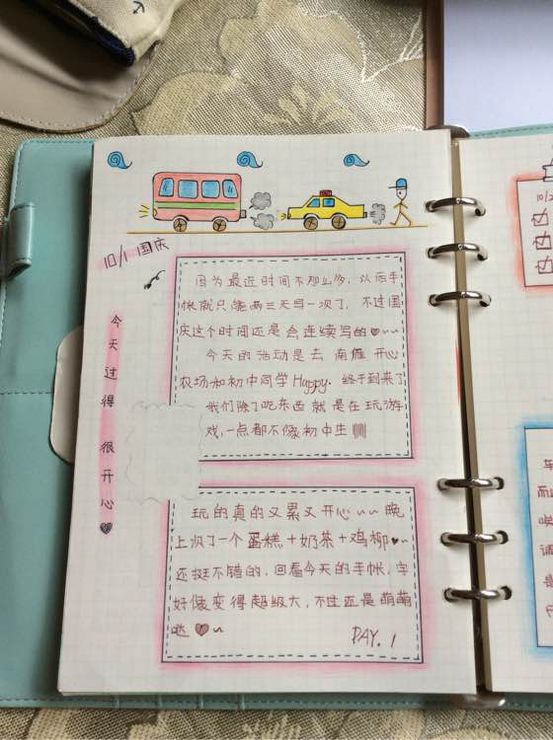 10/1 国庆
今天过得很开心
因为最近时间不那么多，以后手
帐就只能两三天写一次了，不过国
庆这个时间还是会连续写的
今天的活动是去南雁开心
农场和初中同学Happy. 终于到来了
我们除了吃东西就是在玩游
戏，一点都不像初中生
玩的真的又累又开心~~晚
上识了一个蛋糕+奶茶+鸡柳
还挺不错的，回看今天的手帐，字
好像变得超级大，不过还是萌萌
哒
DAY. 1
10/2